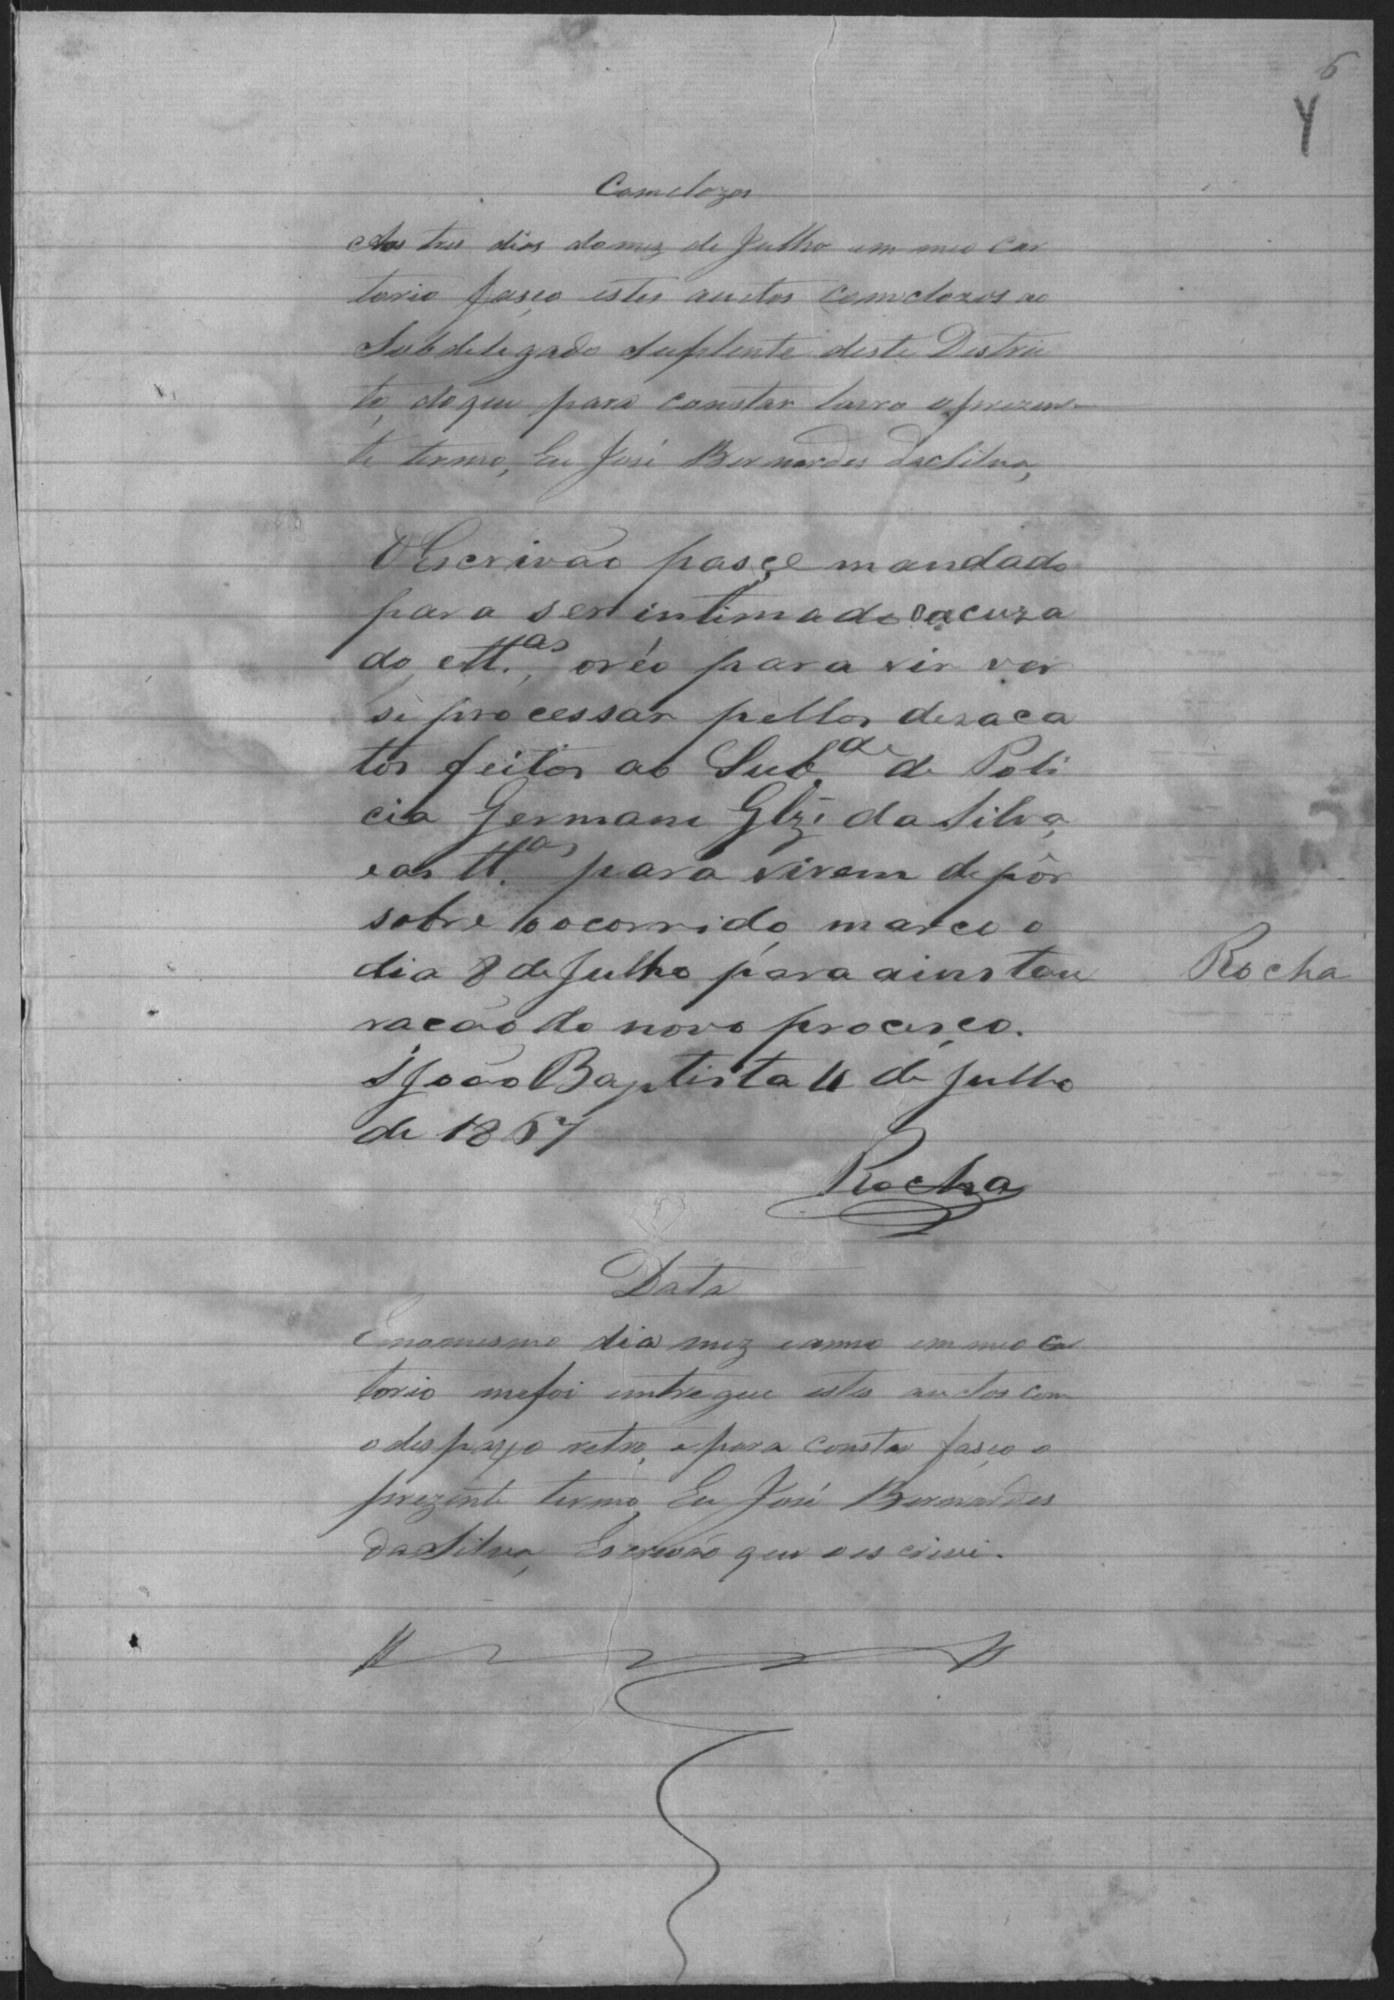 6
Y
Comclozos
Aos tres dias do mez de Julho em meo Car
torio fasço estes auctos comclozos ao
Subdelegado Suplente deste Destric
to, do que para constar lavro o prezen-
te termo, Eu José Bernardes da Silva,
O Escrivão pasçe mandado
para ser intimado o acuza
do, e tt.as, o réo para vir ver
se processar pellos dezaca
tos feitos ao Sub.de de Poli
cia Germano Glz' da Silva,
e as tt.as para virem depôr
sobre o ocorrido, marco o
dia 8 de Julho para a instau
Rocha
ração do novo procesço.
S João Baptista 4 de Julho
de 1867
Rocha
Data
E no mesmo dia mez e anno em meo Car
torio me foi entregue estes auctos com
o despaxo retro, e para constar fasço o
prezente termo, Eu José Bernardes
da Silva, Escrivão que o escrivi.